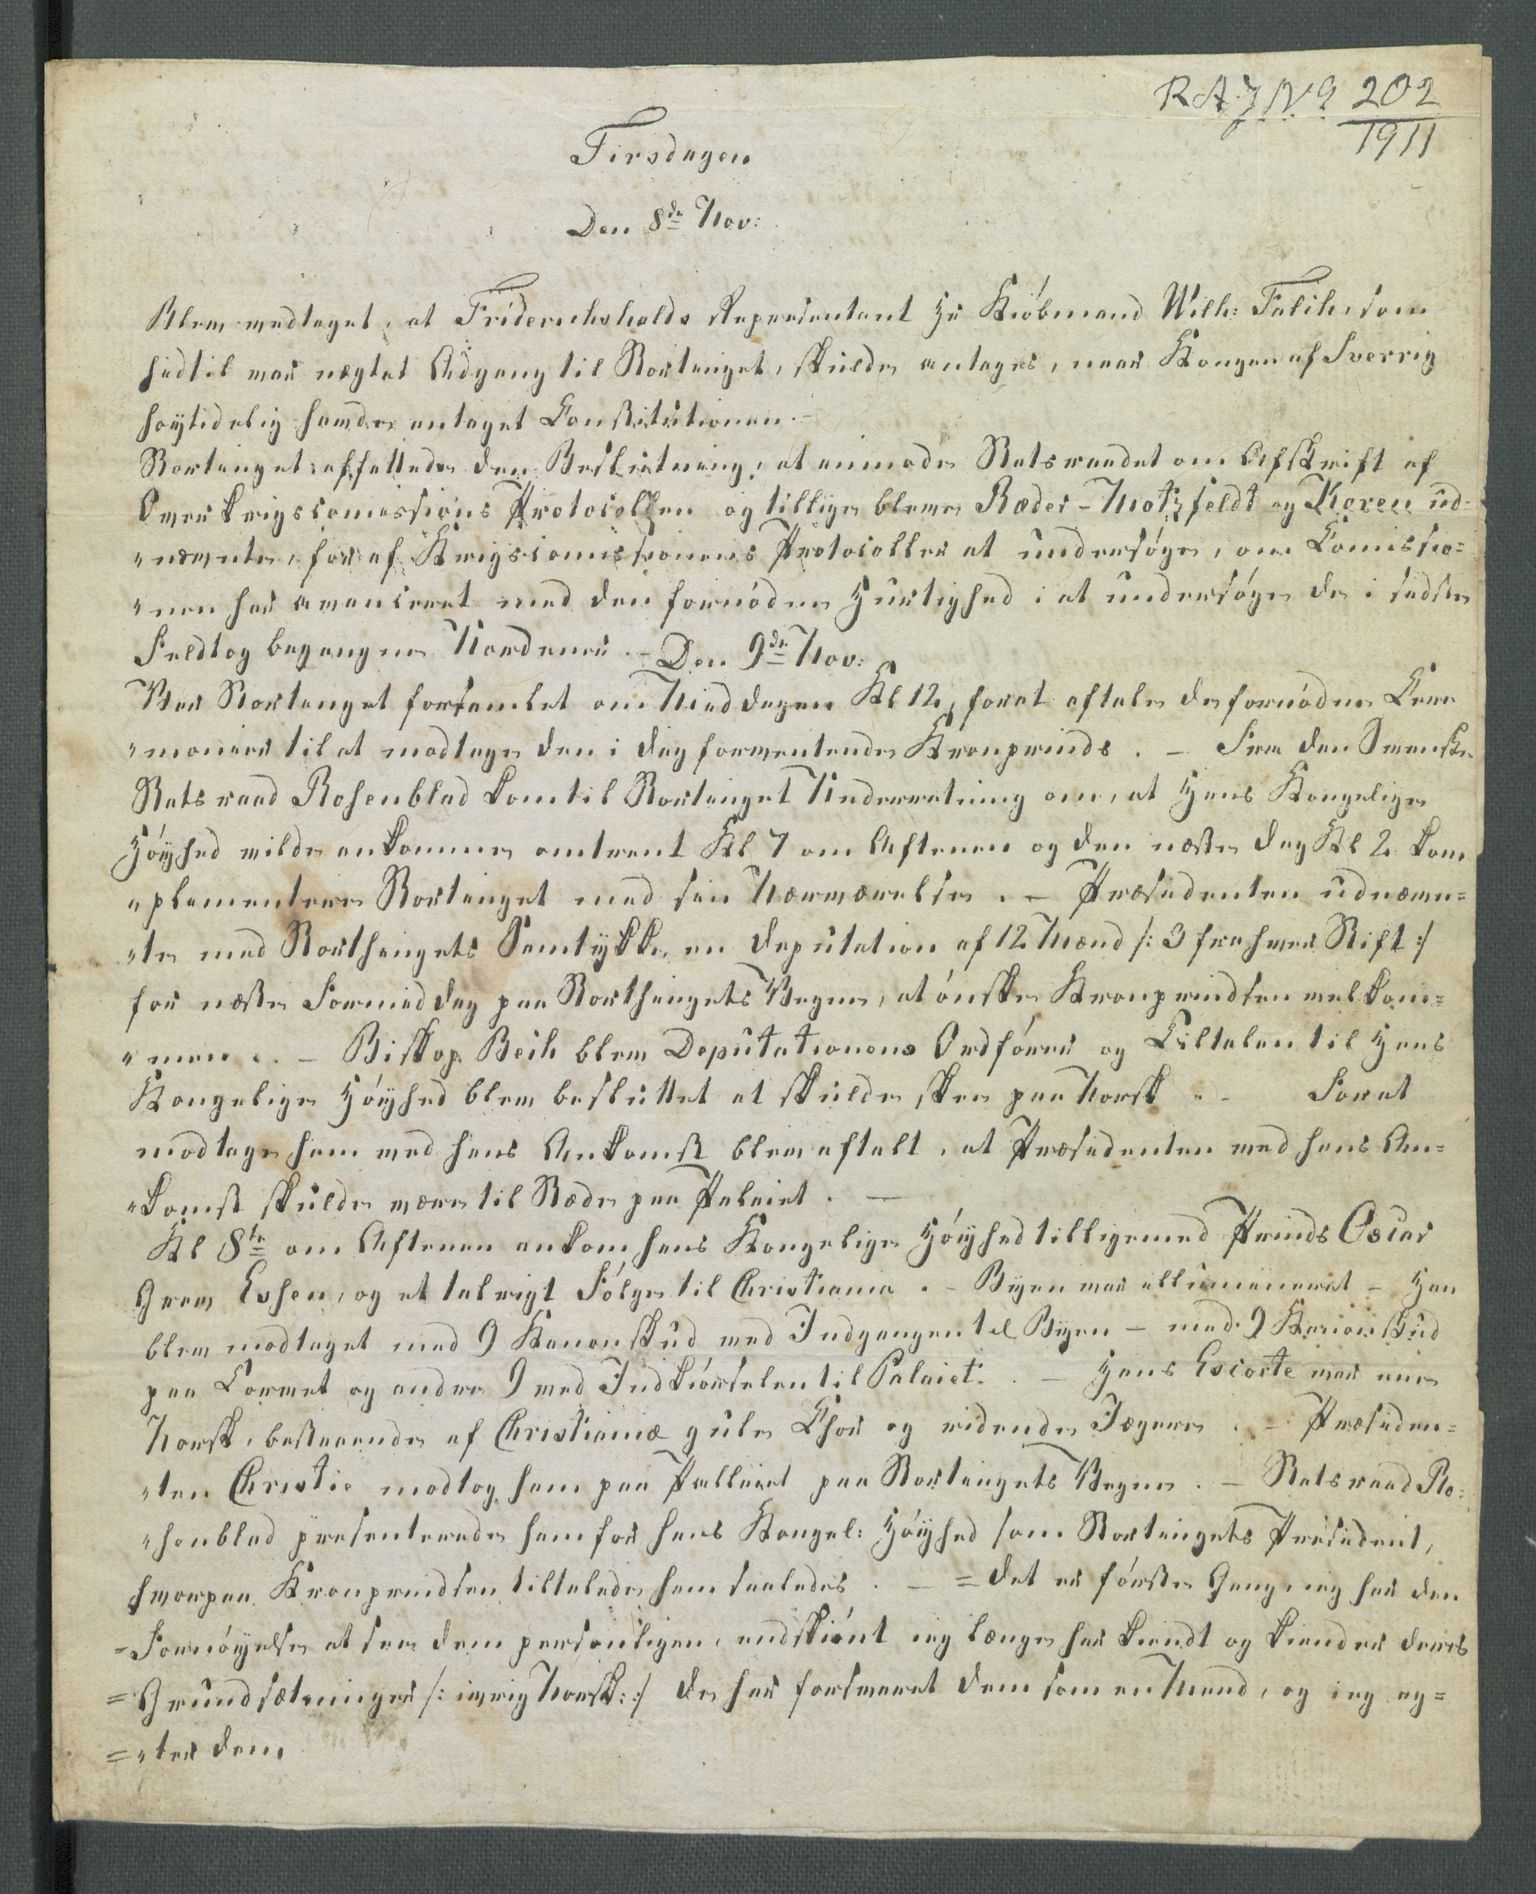 RA. J. No 202
1911
Tirsdagen
Den 8de Nov:
Blev vedtaget, at Friderichshalds Repersentant Hr Kiøbmand Wilh: Falch, som
hidtil var nægtet Adgang til Stortinget, skulde antages, naar Kongen af Sverrig
høytidelig havde antaget Constitutionen.
Stortinget affattede den Beslutning, at anmode Statsraadet om Afskrift af
Overkrigscomissions Protocollen og tillige bleve Ræder - Motzfeldt og Koren ud-
"nævnte, for af Krigscomissionens Protocoller at undersøge, om Comissio=
"nen har avanceret med den fornødne Hurtighed i at undersøge de i sidste
Feldtog begangne Uordener. - Den 9de Nov:
Var Stortinget forsamlet om Middagen Kl 12, forat aftale de fornødne Cere
"monier til at modtage den i dag forventende Kronprinds. - Fra den Svenske
Statsraad Rosenblad kom til Stortinget Underretning om, at Hans Kongelige
Høyhed vilde ankomme omtrent Kl 7 om Aftenen og den næste dag Kl 2 kom
"plementere Stortinget med sin Nærværelse. - Præsidenten udnævn=
"te med Storthingets Samtykke, en Deputation af 12 Mænd /: 3 fra hver Stift :/
for næste Formiddag paa Storthingets Vegne, at ønske Kronprindsen velkom=
"men. - Biskop Bech blev Deputationens Ordfører og Tiltalen til Hans
Kongelige Høyhed blev besluttet at skulde skee paa Norsk. - Forat
modtage ham ved hans Ankomst blev aftalt, at Præsidenten ved hans An=
"komst skulde være til Stæde paa Palaiet. -
Kl 8te om Aftenen ankom hans Kongelige Høyhed tilligemed Prinds Oscar
Grev Essen, og et talrigt Følge til Christiania. - Byen var illumineret - Han
blev modtaget med 9 Kanonskud ved Indgangen til Byen - med 9 Kanonskud
paa Torvet og andre 9 ved Indkiørselen til Palaiet. - Hans Escorte var een
Norsk, bestaaende af Christianiæ gule Chor og ridende Jægere. - Præsiden=
"ten Christie modtog ham paa Pallaiet paa Stortingets Vegne. - Statsraad Ro=
"senblad presenterede ham for hans Kongel: Høyhed som Stortingets Præsident,
hvorpaa Kronprindsen tiltalede ham saaledes. - = Det er første Gang, ieg har den
=Fornøyelse at see dem personligen, endskiønt ieg længe har kiendt og kiender deres
= Grundsætninger /: ivrig Norsk: :/ de har forsvaret dem som en Mand, og ieg ag=
= "ter dem,